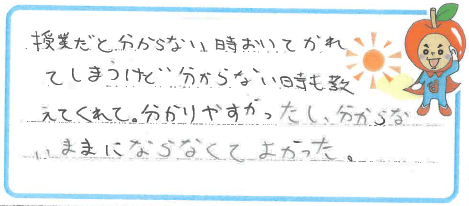 授業だと分からない時おいてかれ
てしまうけど分からない時も教
えてくれて。分かりやすかったし、分からな
いままにならなくてよかった。